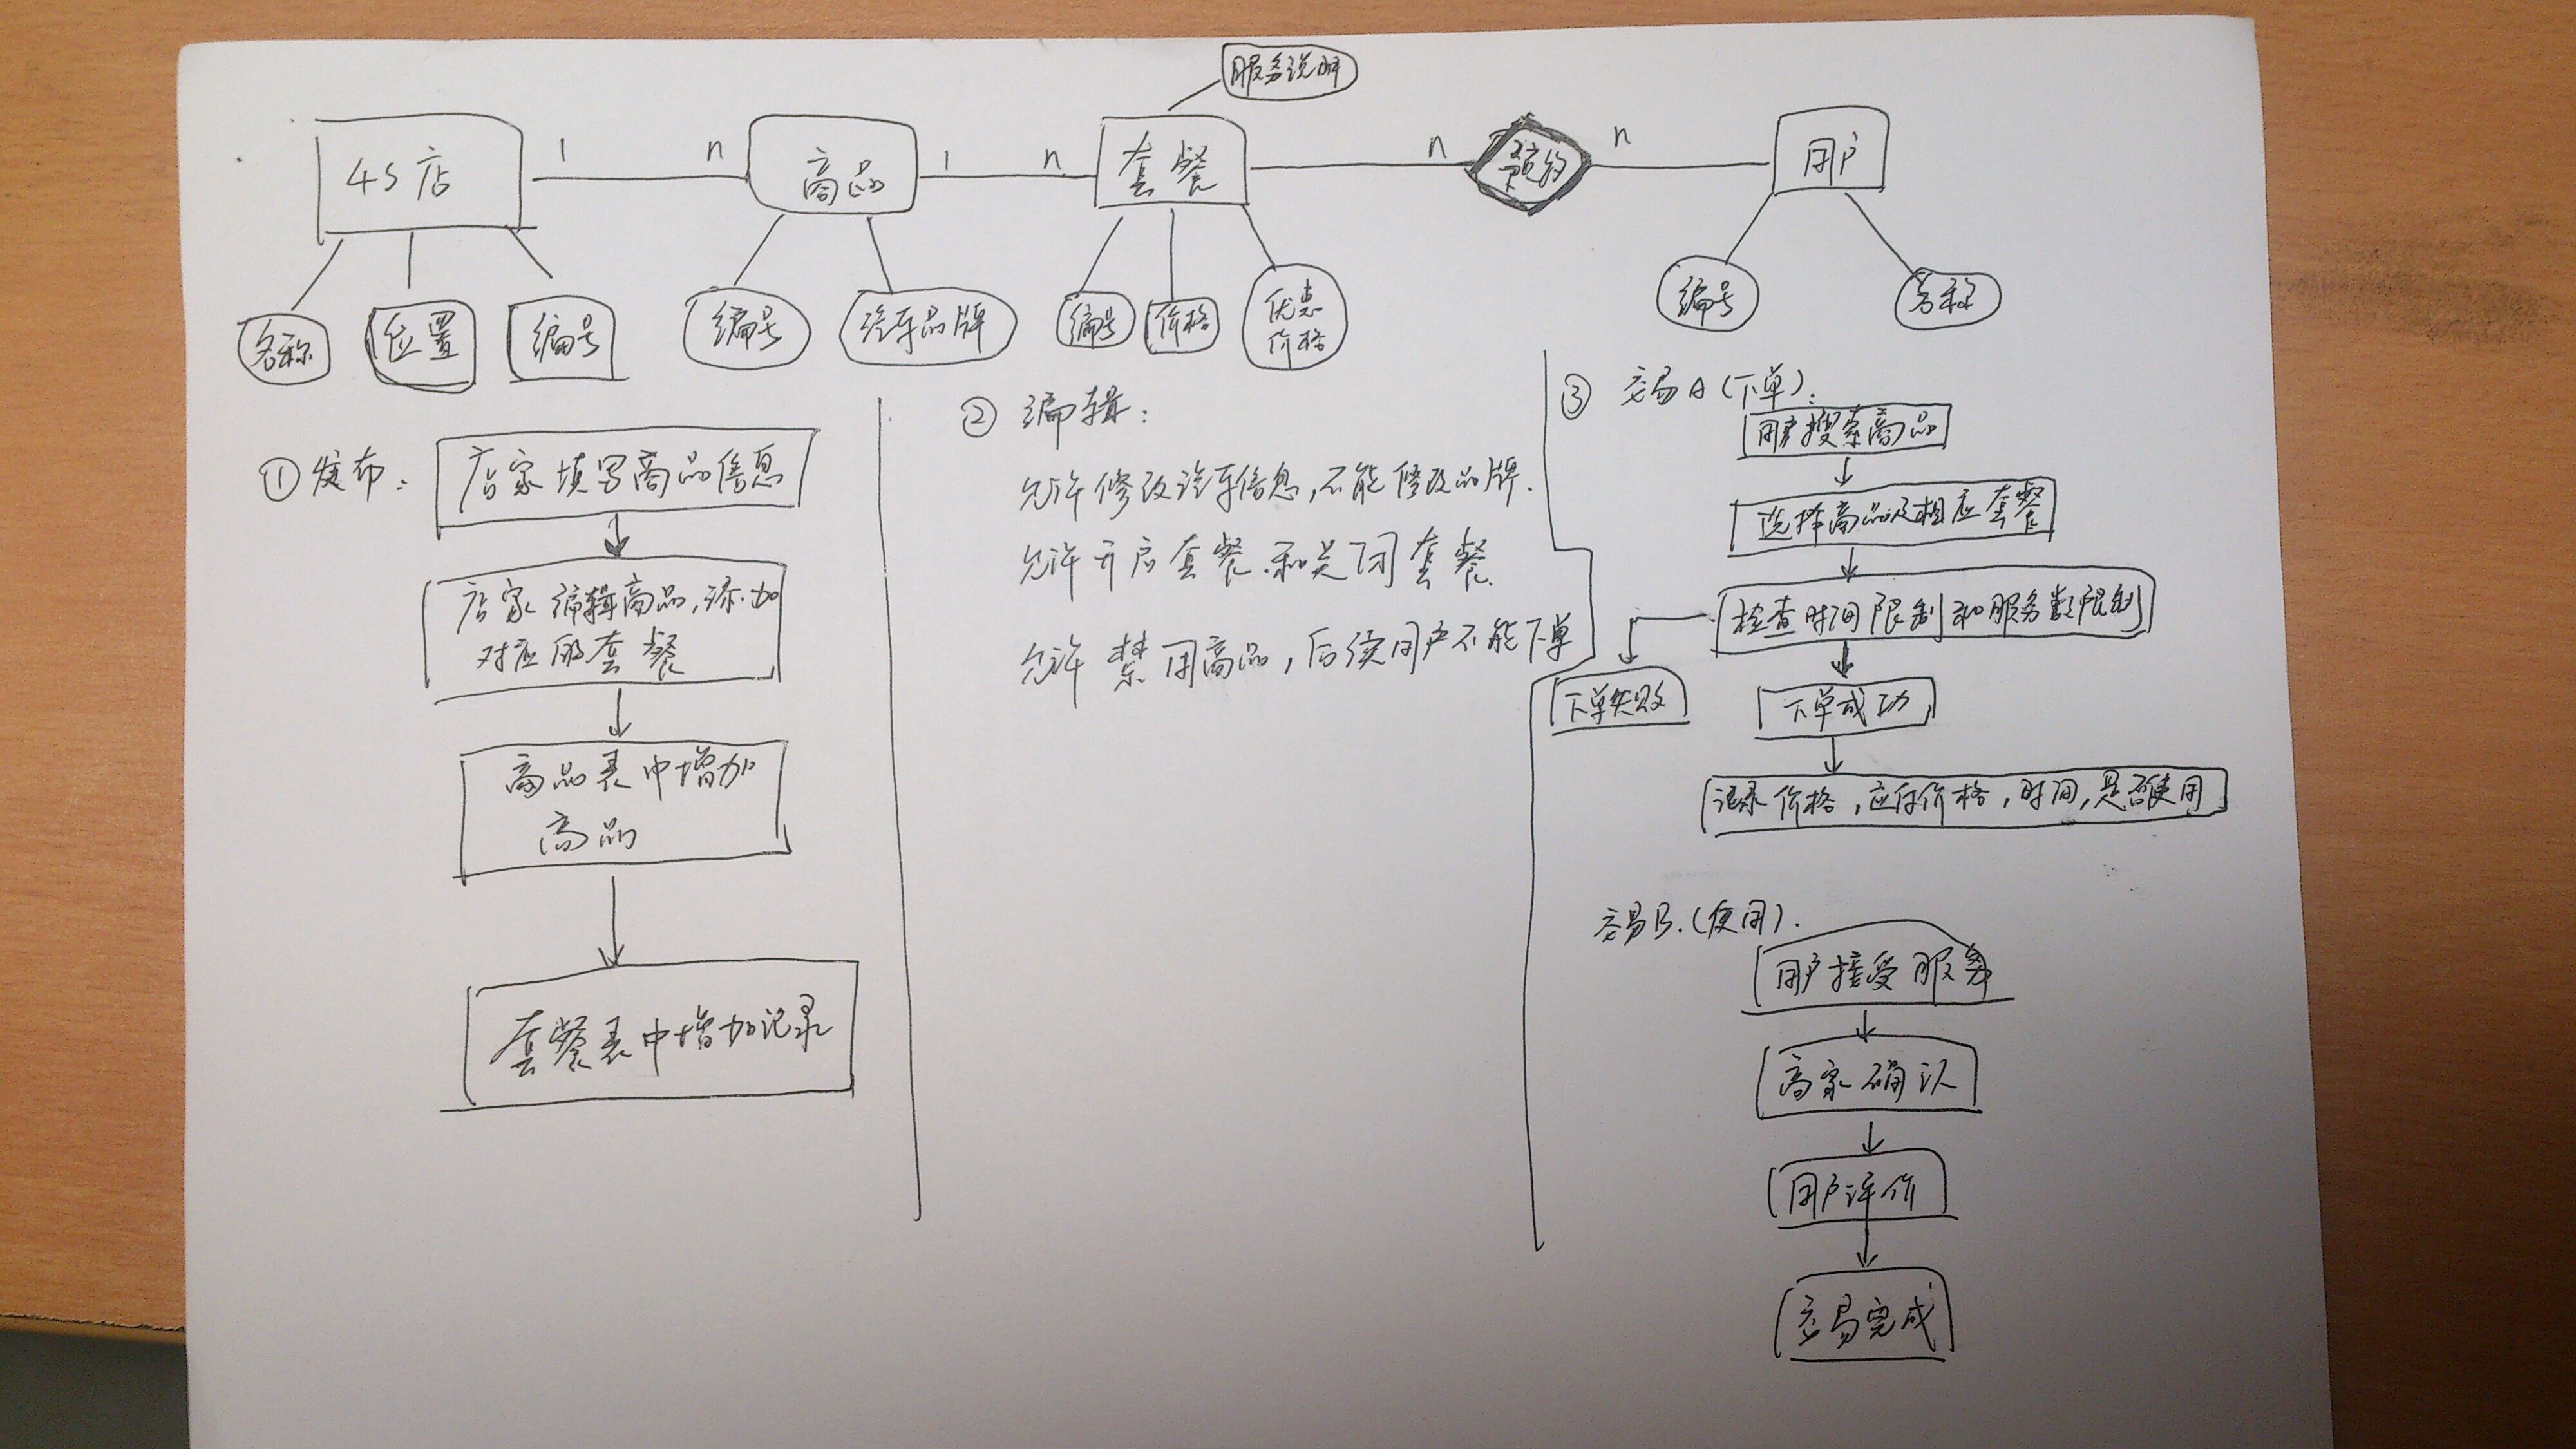 服务说明
4S店 1 n 商品 1 n 套餐 n 预约 n 用户
名称 位置 编号 编号 汽车品牌 编号 价格 优惠 编号 名称
价格
①发布:
店家填写商品信息
店家编辑商品,添加
对应的套餐
商品表中增加
商品
套餐表中增加记录
② 编辑:
允许修改汽车信息,不能修改品牌.
允许开启套餐.和关闭套餐.
允许禁用商品,后续用户不能下单
③ 交易A(下单):
用户搜索商品
选择商品及相应套餐
检查时间限制和服务数限制
下单失败
下单成功
记录价格,应付价格,时间,是否使用
交易B.(使用).
用户接受服务
商家确认
用户评价
交易完成